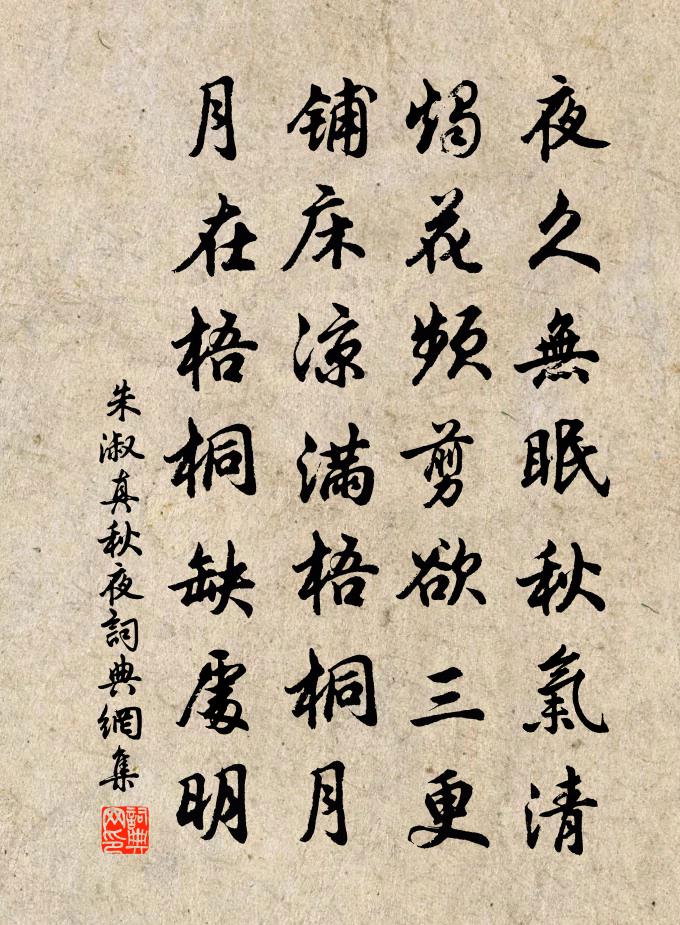 夜久無眠秋氣清
燭花頻剪欲三更
鋪床凉滿梧桐月
月在梧桐缺處明
朱淑真秋夜詞典網集
詞典网印